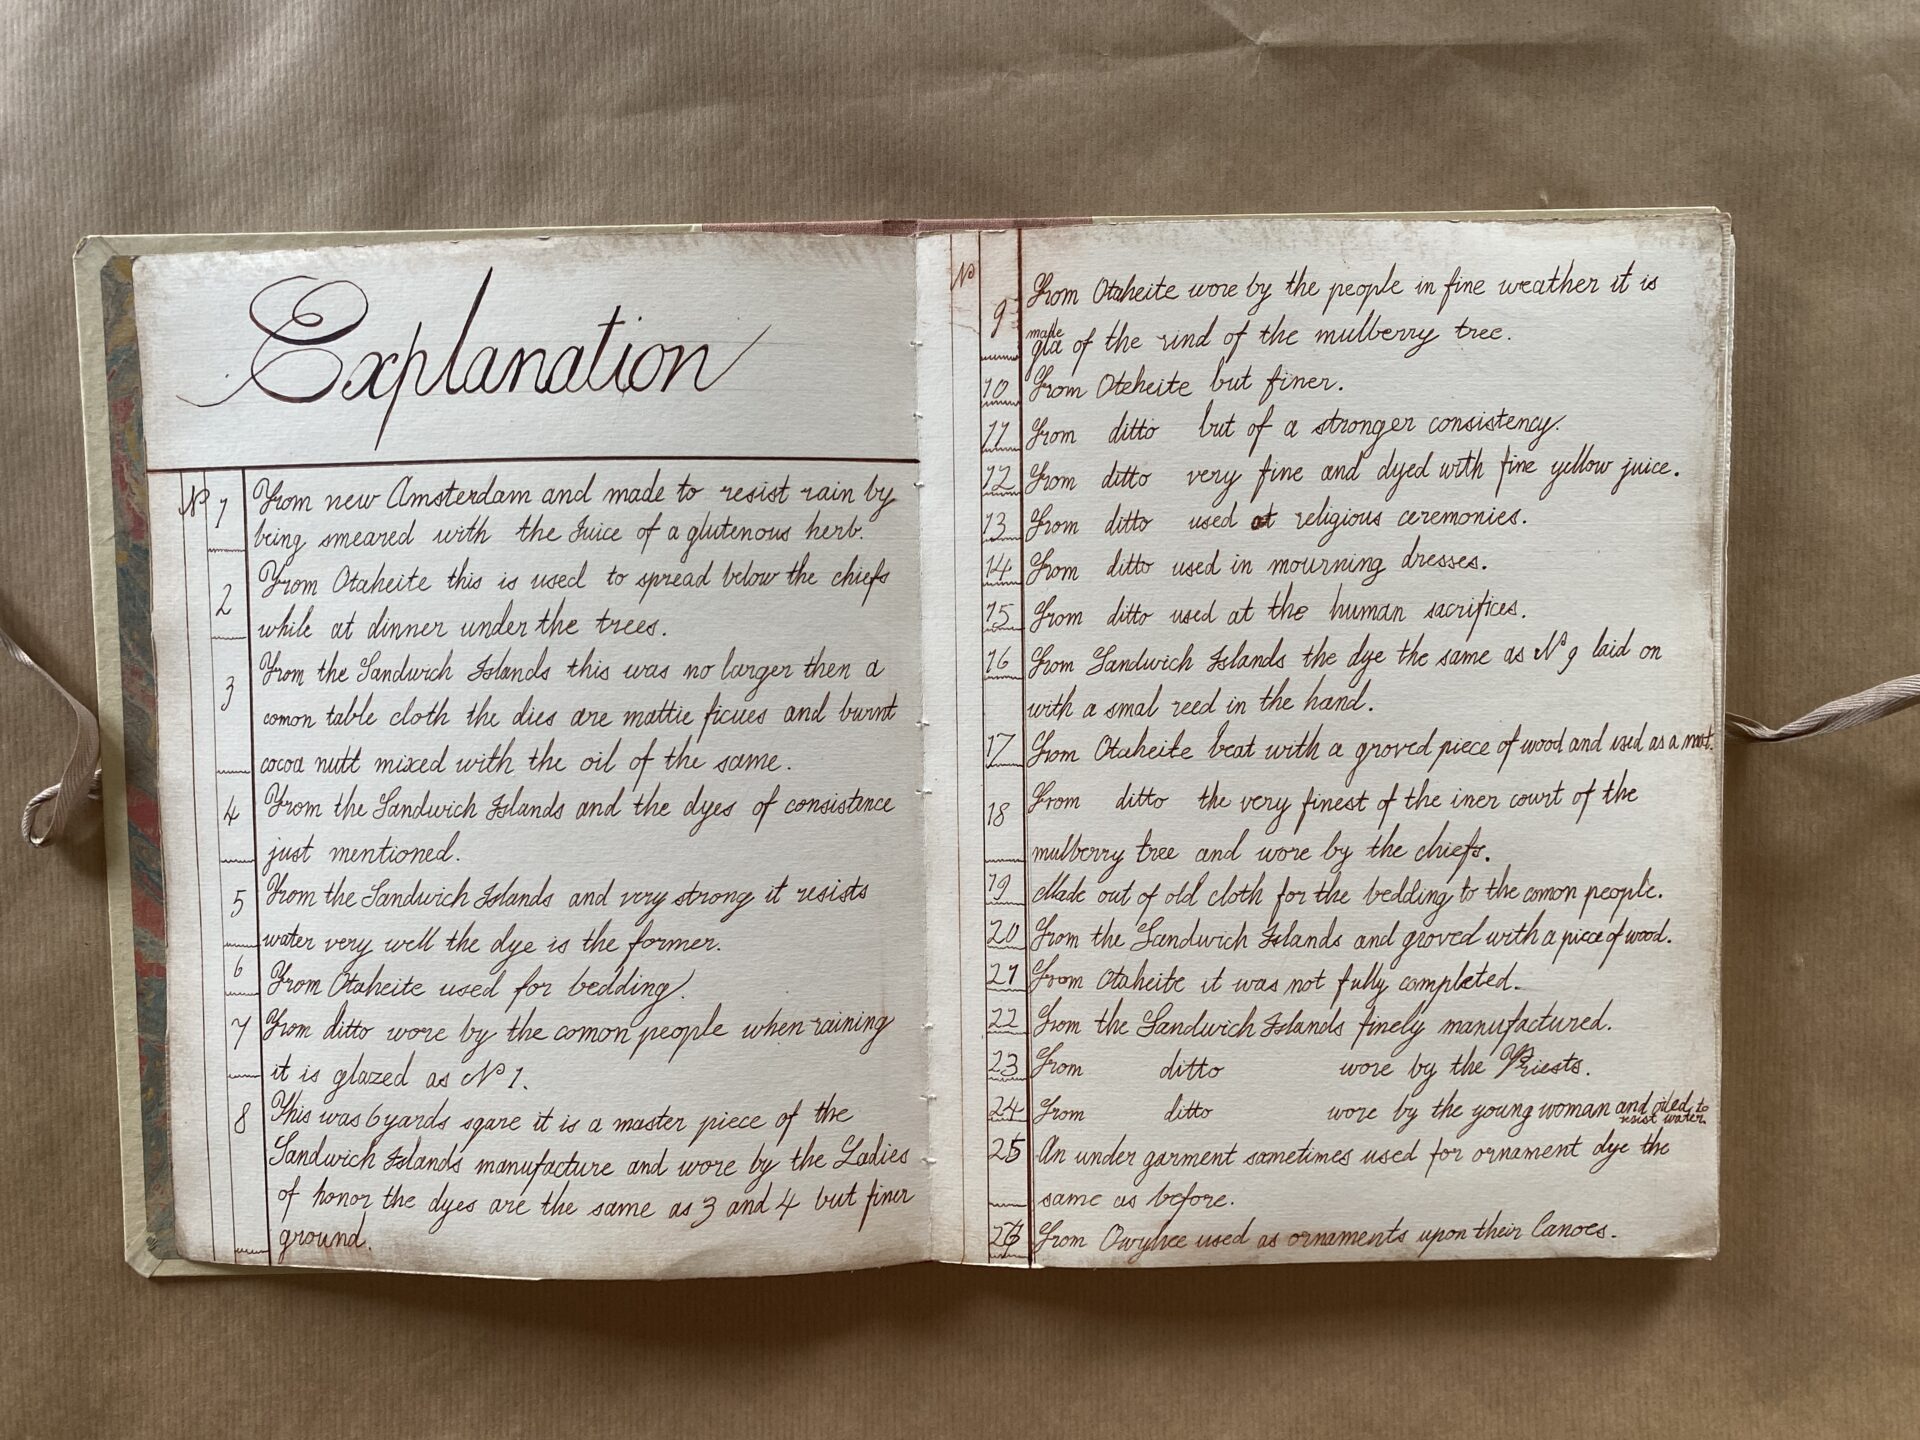 Explanation
No 1 From new Amsterdam and made to resist rain by
being smeared with the Juice of a glutenous herb.
2 From Otaheite this is used to spread below the chiefs
while at dinner under the trees.
3 From the Sandwich Islands this was no larger then a
comon table cloth the dies are mattie ficues and burnt
cocoa nutt mixed with the oil of the same.
4 From the Sandwich Islands and the dyes of consistence
just mentioned.
5 From the Sandwich Islands and very strong it resists
water very well the dye is the former.
6 From Otaheite used for bedding.
7 From ditto wore by the comon people when raining
it is glazed as No 1.
8 This was 6 yards sqare it is a master piece of the
Sandwich Islands manufacture and wore by the Ladies
of honor the dyes are the same as 3 and 4 but finer
ground.
No
9 From Otaheite wore by the people in fine weather it is
made
of the rind of the mulberry tree.
10 From Oteheite but finer.
11 From ditto but of a stronger consistency.
12 From ditto very fine and dyed with fine yellow juice.
13 From ditto used at religious ceremonies.
14 From ditto used in mourning dresses.
15 From ditto used at the human sacrifices.
16 From Sandwich Islands the dye the same as No 9 laid on
with a smal reed in the hand.
17 From Otaheite beat with a groved piece of wood and used as a
18 From ditto the very finest of the iner court of the
mulberry tree and wore by the chiefs.
19 Made out of old cloth for the bedding to the comon people.
20 From the Sandwich Islands and groved with a piece of wood.
21 From Otaheite it was not fully completed.
22 From the Sandwich Islands finely manufactured.
23 From ditto wore by the Priests.
24 From ditto wore by the young woman and oiled to
resist water.
25 An under garment sametimes used for ornament dye the
same as before.
From Owyhee used as ornaments upon their Canoes.